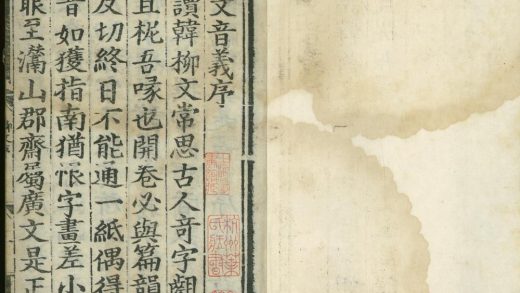 文音義序
讀韓柳文常思古人奇字觀
且柅吾喙也開卷必與篇韻
反切終日不能通一紙偶得
音如獲指南猶恨字畫差小
眼至灊山郡齋蜀廣文是正